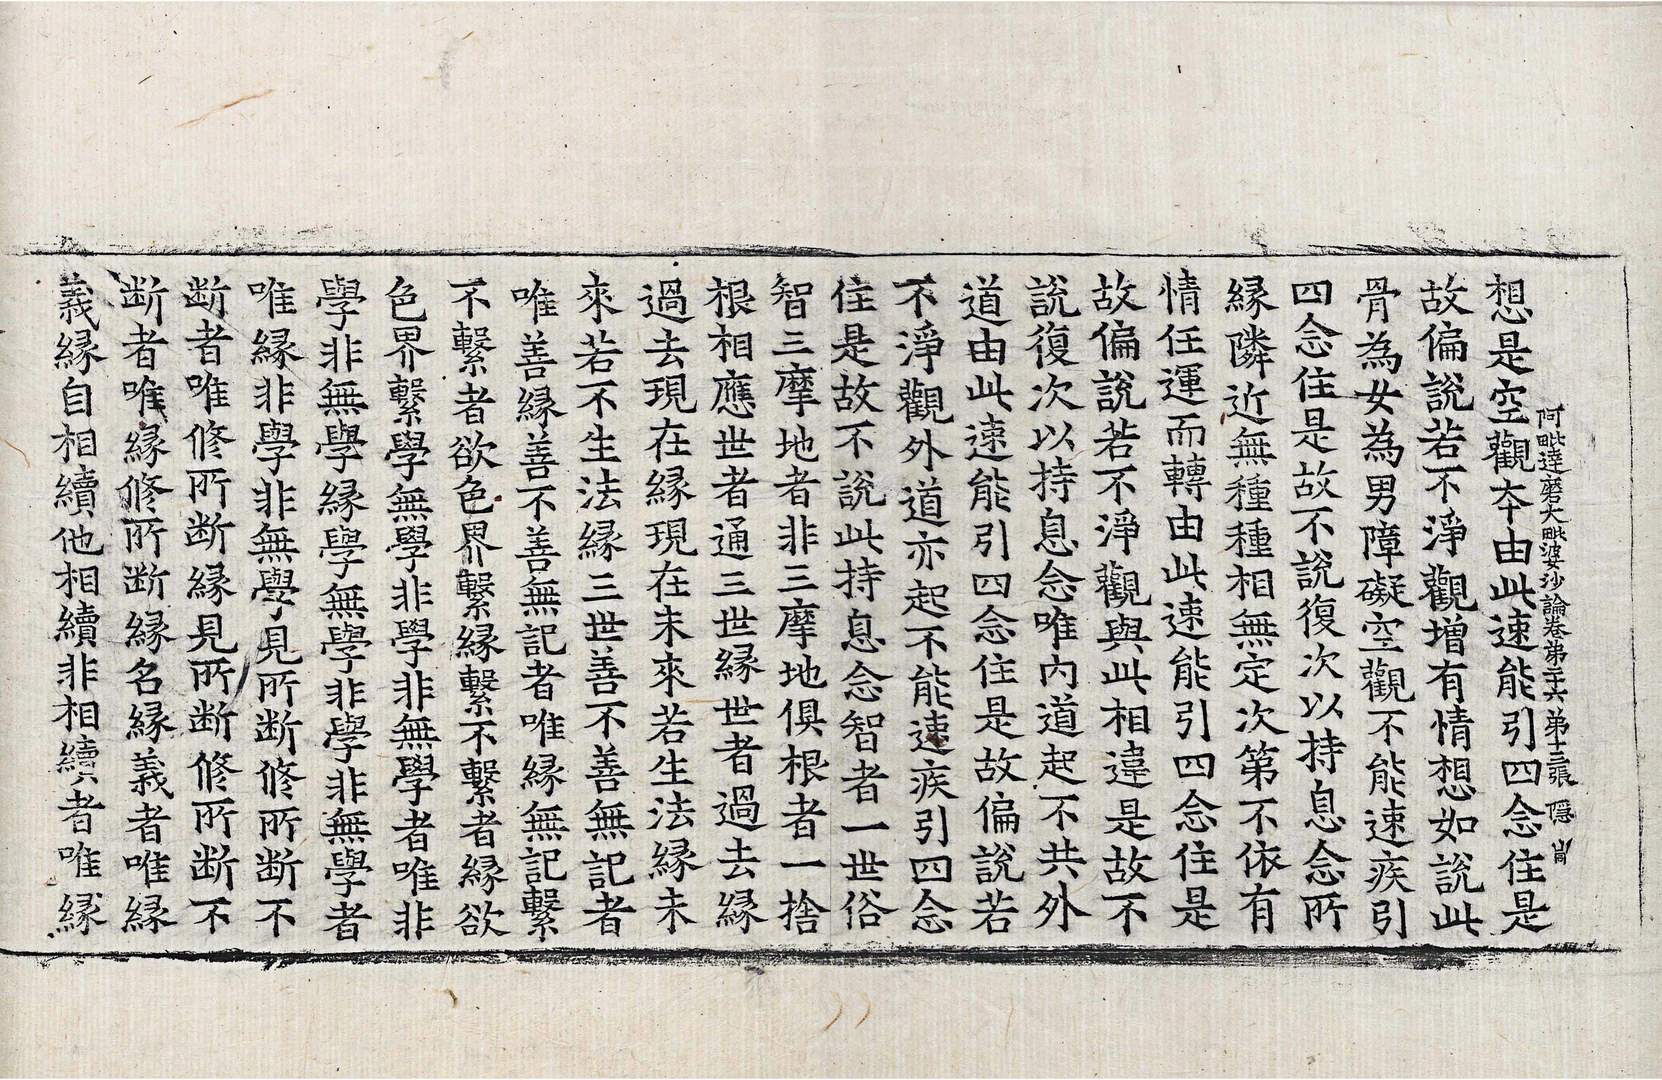 阿毗達磨大毗婆沙論卷第二十六 第十三張 隱
想是空觀夲由此速能引四念住是
故偏說若不淨觀增有情想如說此
骨為女為男障礙空觀不能速疾引
四念住是故不說復次以持息念所
縁隣近無種種相無定次第不依有
情任運而轉由此速能引四念住是
故偏說若不淨觀與此相違是故不
說復次以持息念唯內道起不共外
道由此速能引四念住是故偏說若
不淨觀外道亦起不能速疾引四念
住是故不說此持息念智者一世俗
智三摩地者非三摩地俱根者一捨
根相應世者通三世縁世者過去縁
過去現在縁現在未來若生法縁未
來若不生法縁三世善不善無記者
唯善縁善不善無記者唯縁無記繫
不繫者欲色界繫縁繫不繫者縁欲
色界繫學無學非學非無學者唯非
學非無學縁學無學非學非無學者
唯縁非學非無學見所断修所断不
断者唯修所断縁見所断修所断不
断者唯縁修所断縁名縁義者唯縁
義縁自相續他相續非相續者唯縁